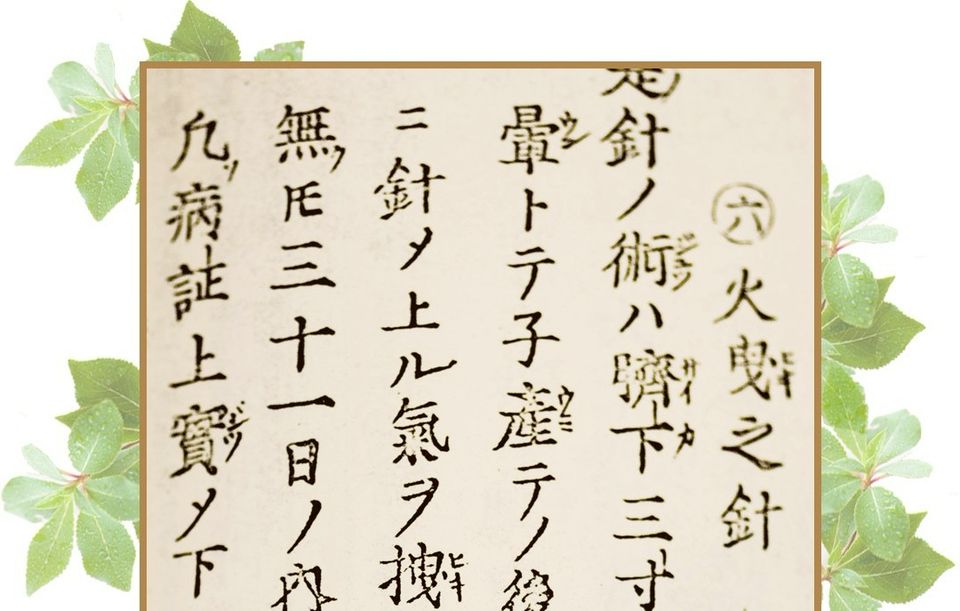 ㊅火曳之針
是針ノ術ハ臍下三寸
暈トテ子産テノ後
ニ針メ上ル氣ヲ拽
無㐧三十一日ノ内
凢病証上實メ下